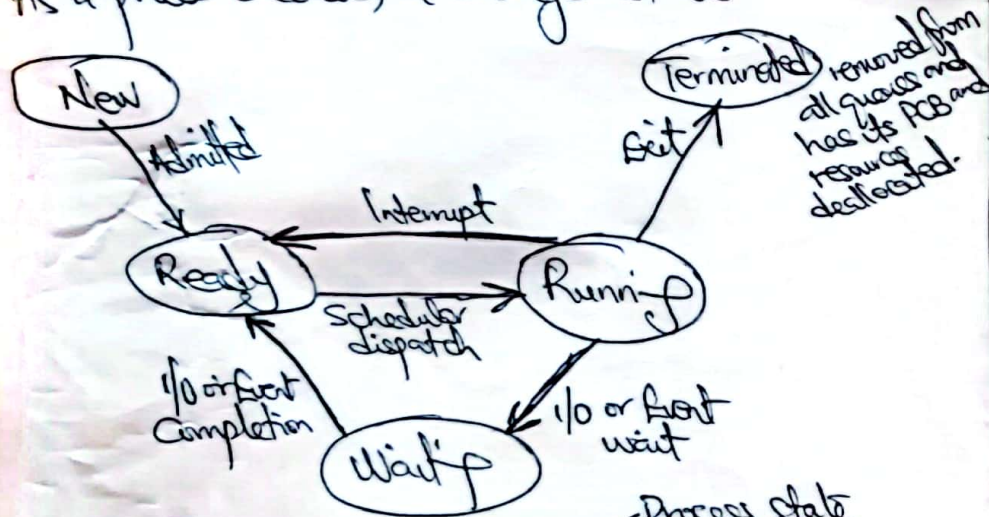 As a process
New
Terminated
removed from
all queues and
has its PCB and
resources
deallocated.
Admitted
Exit
Interrupt
Ready
Running
Scheduler
dispatch
I/O or Event
Completion
I/O or Event
wait
Waiting
-Process state